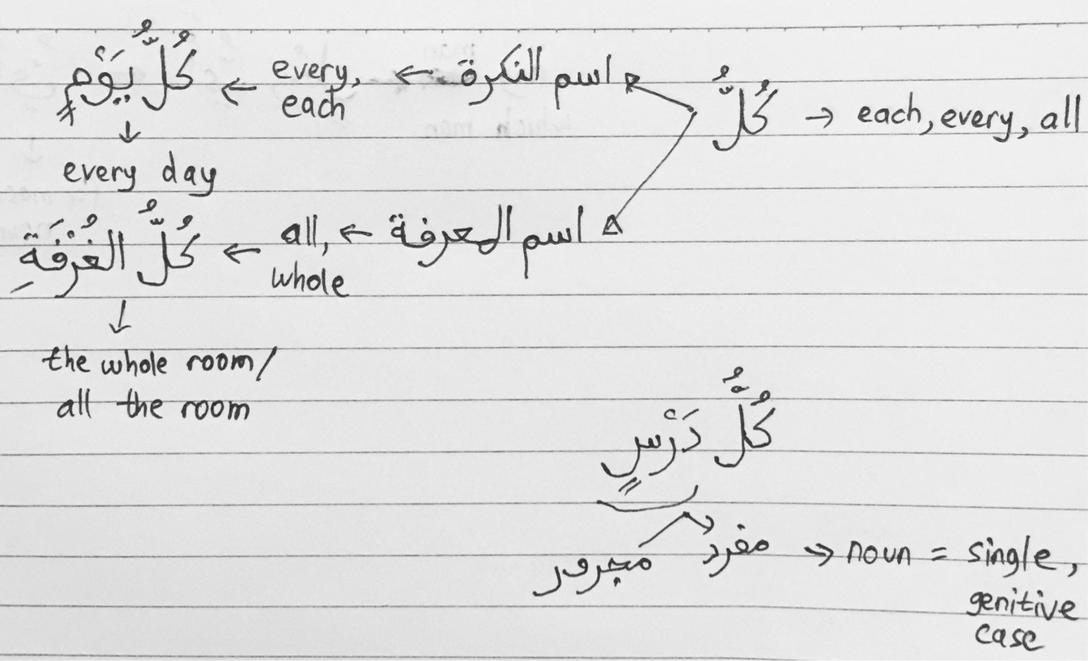 كُلُّ → each, every, all
اسم النكرة ← every, each ← كُلُّ يَوْمٍ
↓
every day
اسم المعرفة ← all, whole ← كُلُّ الغُرْفَةِ
↓
the whole room/
all the room
كُلُّ دَرْسٍ
مفرد مجرور → noun = single,
genitive
case